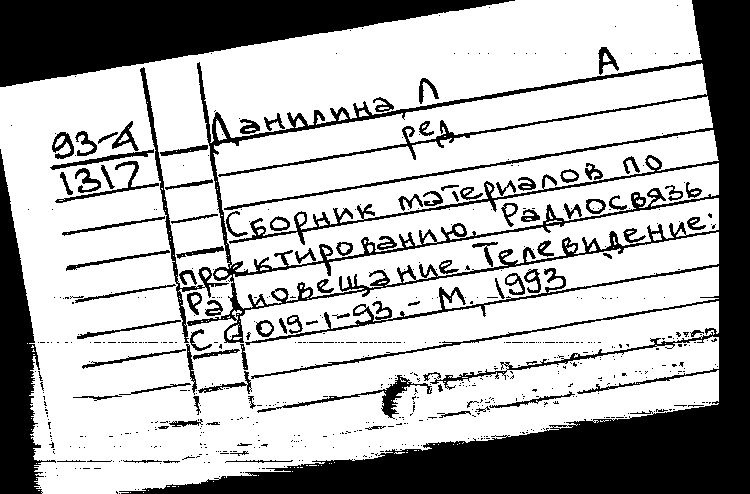 А
Данилина Л
ред.
93-4
1317
Сборник материалов по
проектированию. Радиосвязь.
Радиовещание. Телевидение:
С.6.019-1-93. - М., 1993